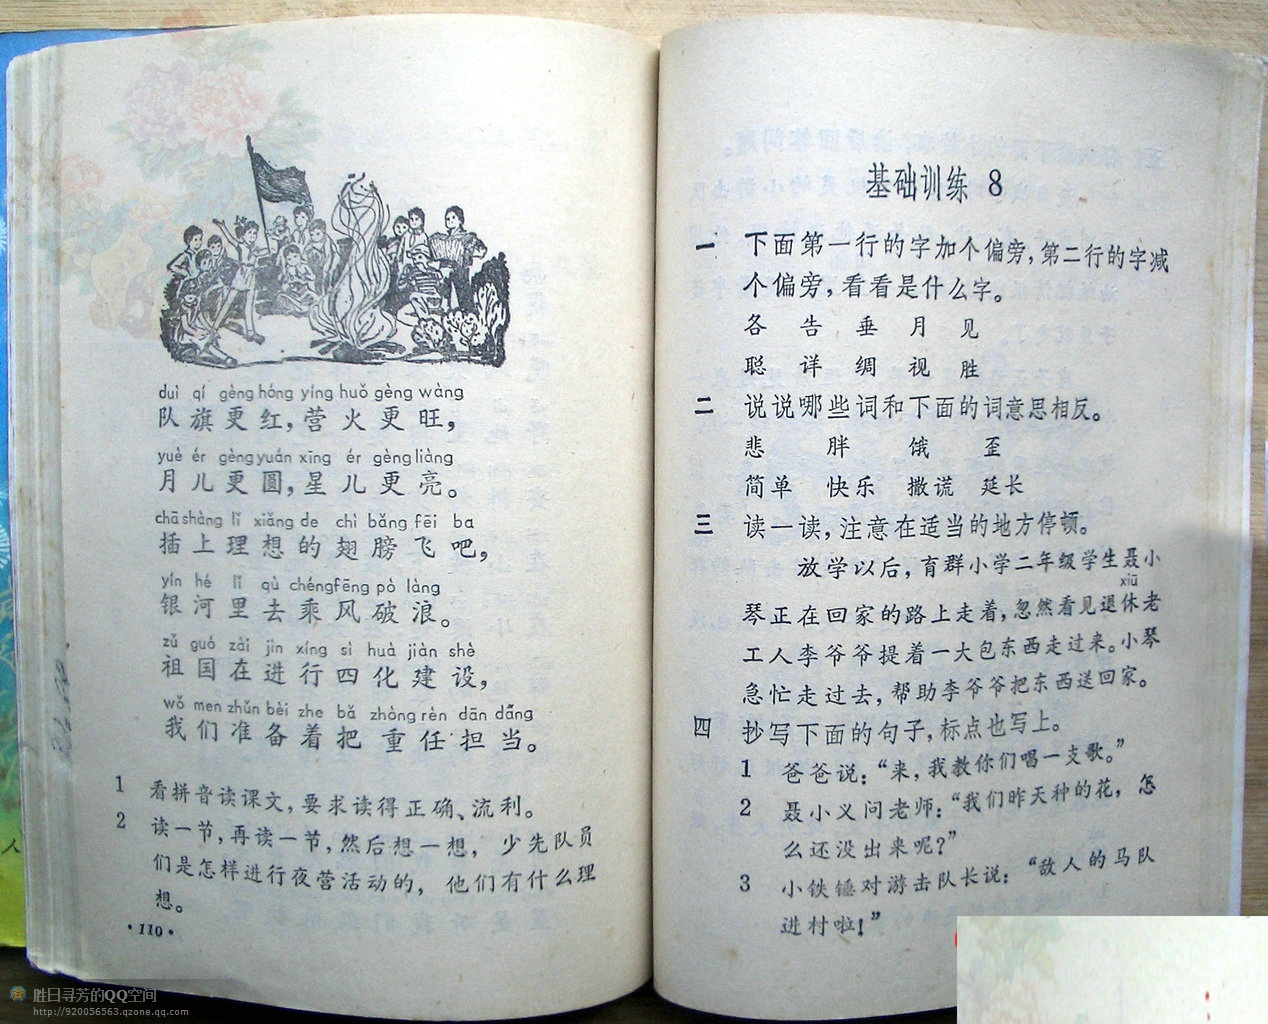 duì qí gèng hóng yíng huǒ gèng wàng
队旗更红，营火更旺，
yuè ér gèng yuán xīng ér gèng liàng
月儿更圆，星儿更亮。
chā shàng lǐ xiǎng de chì bǎng fēi ba
插上理想的翅膀飞吧，
yín hé lǐ qù chéng fēng pò làng
银河里去乘风破浪。
zǔ guó zài jìn xíng sì huà jiàn shè
祖国在进行四化建设，
wǒ men zhǔn bèi zhe bǎ zhòng rèn dān dāng
我们准备着把重任担当。
1 看拼音读课文，要求读得正确、流利。
2 读一节，再读一节，然后想一想，少先队员
们是怎样进行夜营活动的，他们有什么理
想。
·110·
基础训练 8
一 下面第一行的字加个偏旁，第二行的字减
个偏旁，看看是什么字。
各 告 垂 月 见
聪 详 绸 视 胜
二 说说哪些词和下面的词意思相反。
悲 胖 饿 歪
简单 快乐 撒谎 延长
三 读一读，注意在适当的地方停顿。
放学以后，育群小学二年级学生聂小
xiū
琴正在回家的路上走着，忽然看见退休老
工人李爷爷提着一大包东西走过来。小琴
急忙走过去，帮助李爷爷把东西送回家。
四 抄写下面的句子，标点也写上。
1 爸爸说：“来，我教你们唱一支歌。”
2 聂小义问老师：“我们昨天种的花，怎
么还没出来呢？”
3 小铁锤对游击队长说：“敌人的马队
进村啦！”
人
胜日寻芳的QQ空间
http://920056563.qzone.qq.com